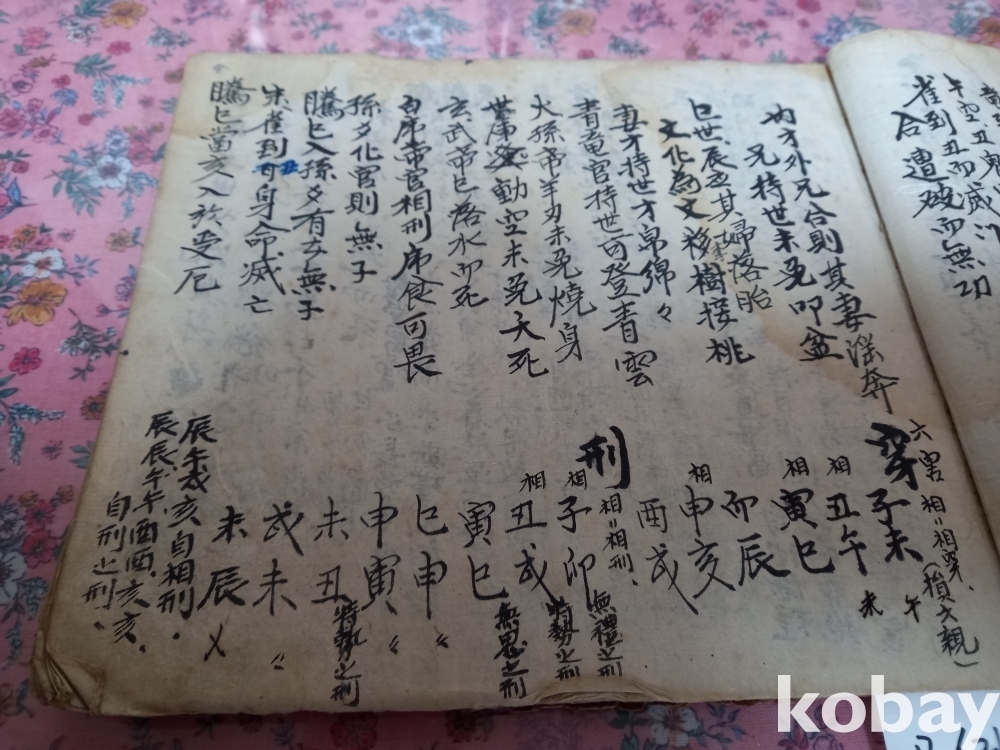 雀到丑而滅
合遭破而無功
內才外兄合則其妻淫奔
兄持世未免叩盆
巳世辰丑其婦落胎
文化為文移樹接桃
妻才持世才帛綿々
青竜官持世可登青雲
火孫帶羊刃未免燒身
世虎發動空未免夭死
玄武帶巳落水而死
白虎帶官相刑虎食可畏
孫爻化官則無子
騰巳入孫爻有子無子
朱雀到丑身命滅亡
騰巳當亥入於受厄
六害相=相穿.(損六親)
穿
子未
相丑午
相寅巳
卯辰
相申亥
酉戌
刑
相=相刑.
相子卯 無禮之刑
相丑戌 特勢之刑
寅巳 無恩之刑
巳申 〃
申寅 〃
未丑 特勢之刑
戌未 〃
未辰 X
辰午戌亥自相刑.
辰辰.午午.酉酉.亥亥.
自刑之刑.
未 午
kobay